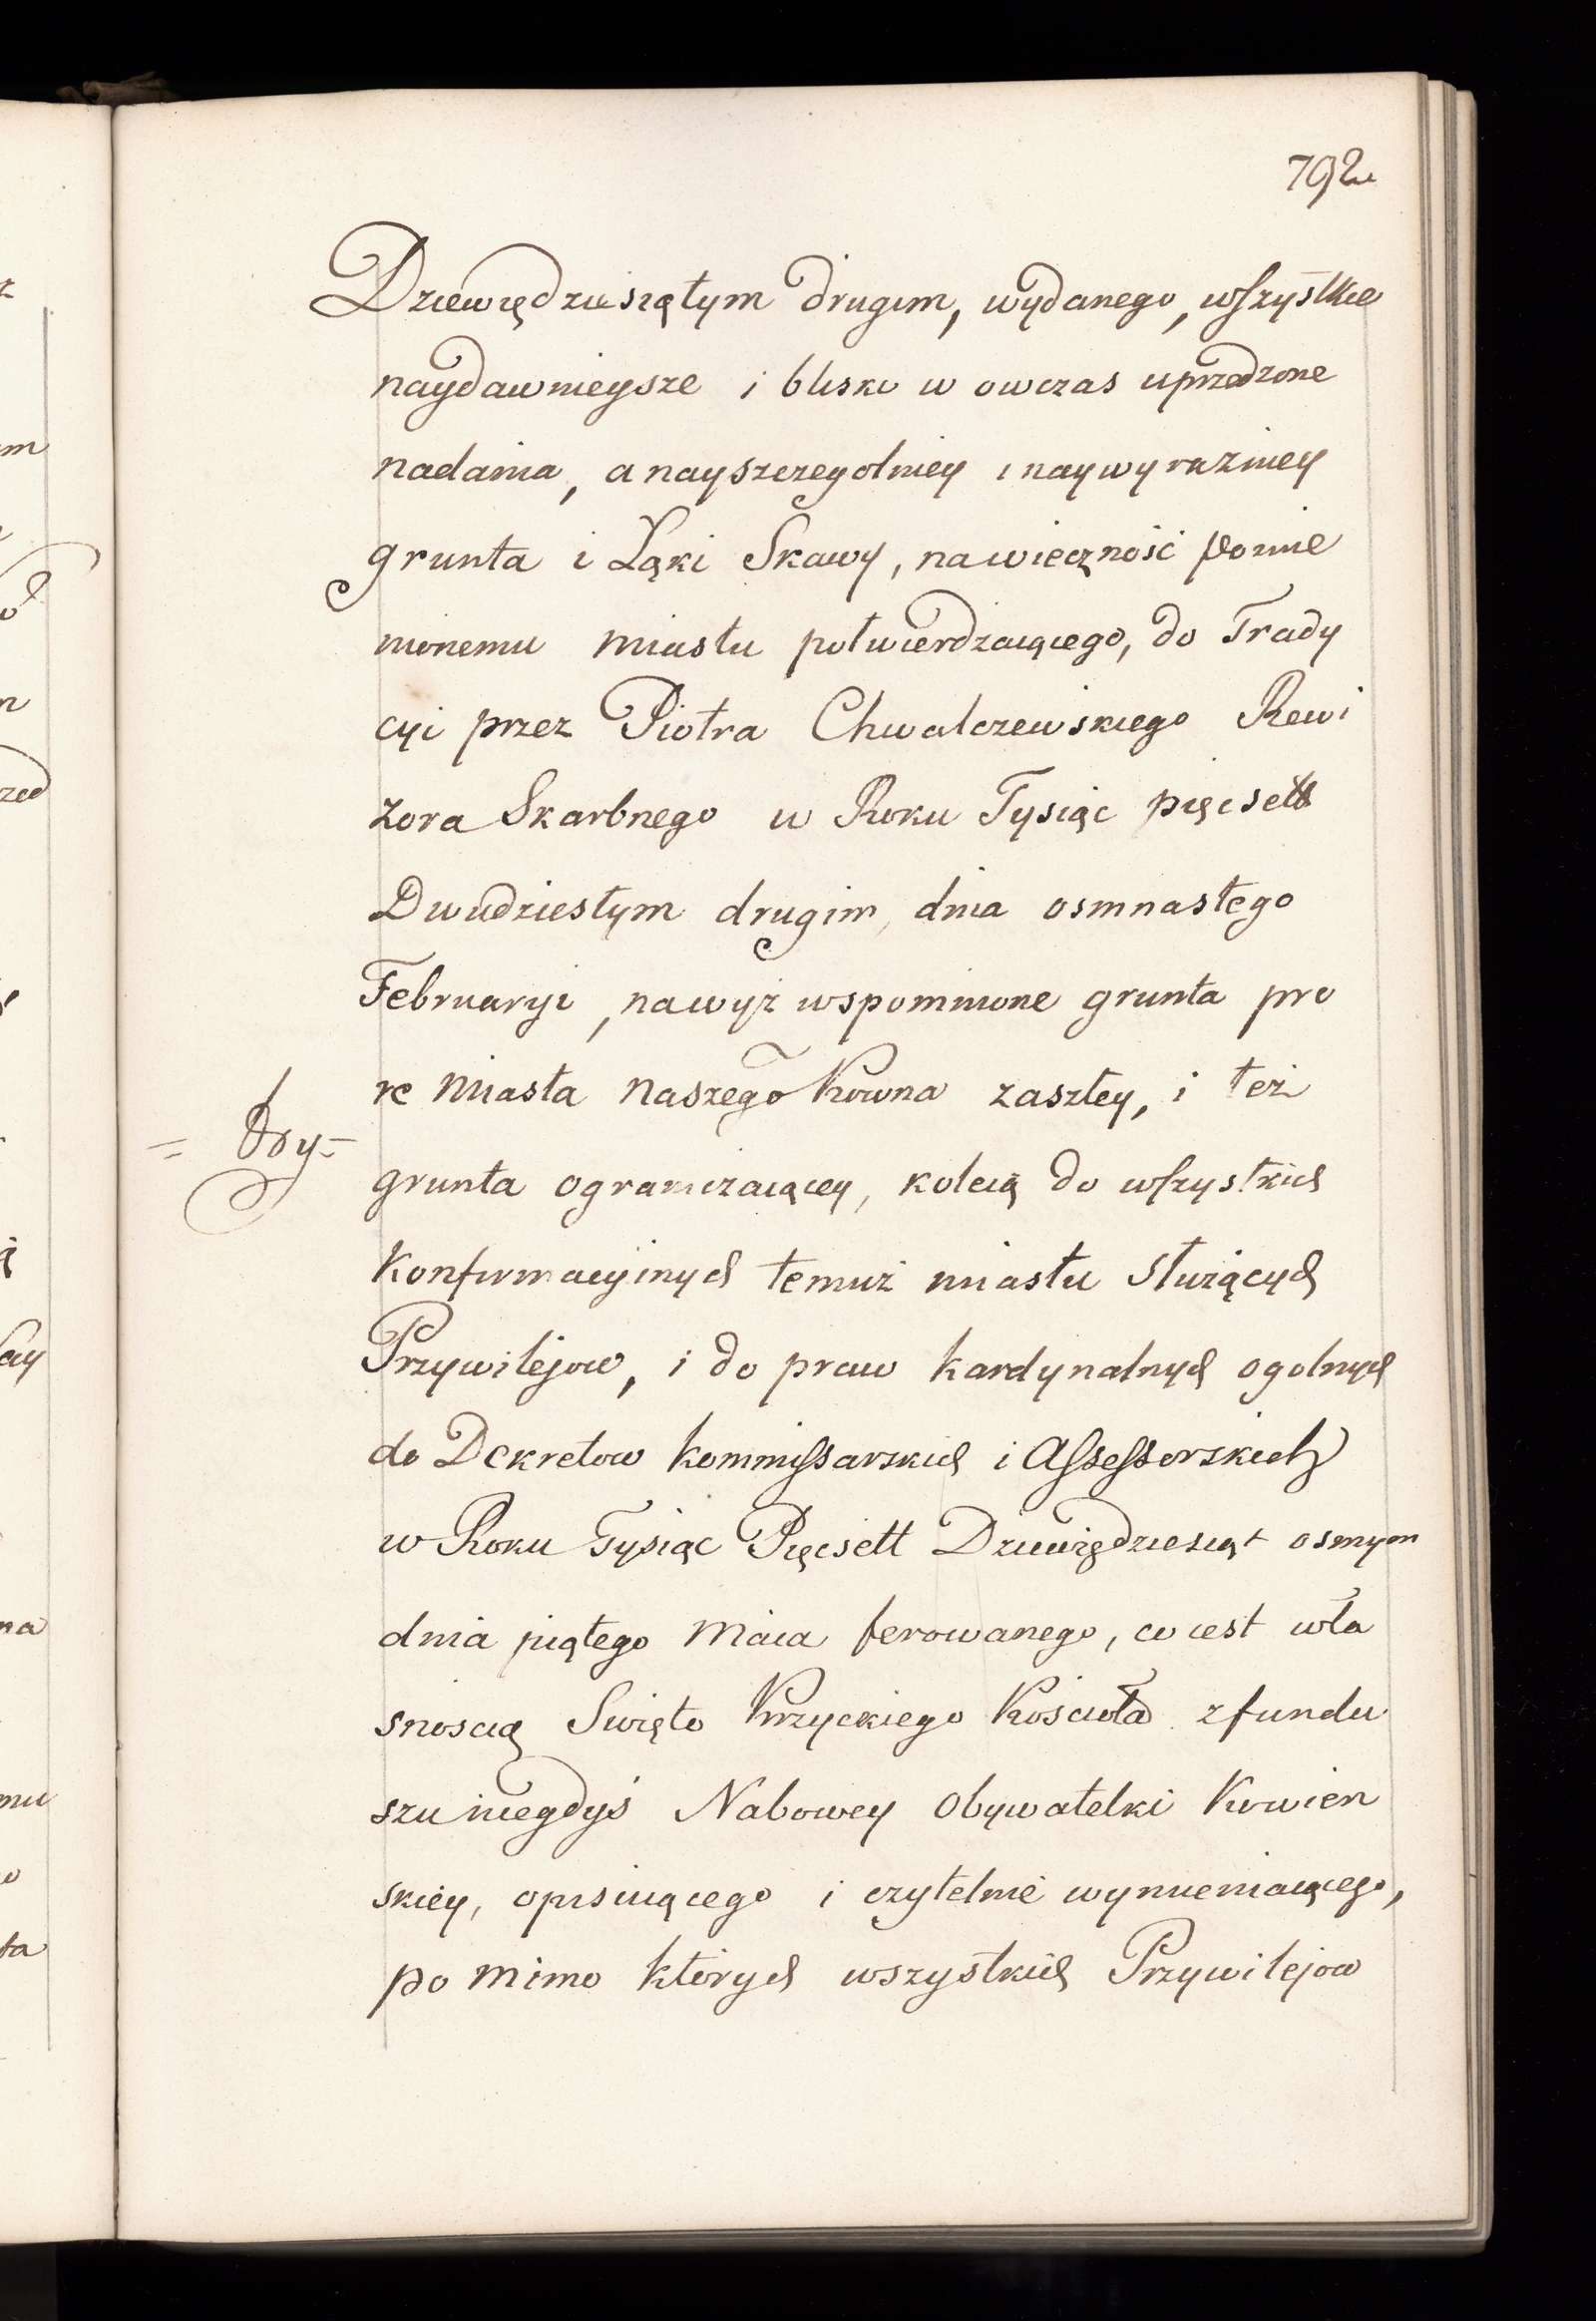 792
Dziewiędziesiątym drugim, wydanego, wszystkie
naydawnieysze i blisko w owczas uprzedzone
nadania, a nayszczegolniey i naywyrazniey
grunta i Łąki Skawy, nawieczność pomie
nionemu miastu potwierdzaiącego, do Trady
cyi przez Piotra Chwalczewskiego Rewi
zora Skarbnego w Roku Tysiąc pięćsett
Dwudziestym drugim, dnia osmnastego
Februaryi, nawyż wspomnione grunta pro
re miasta naszego Kowna zaszłey, i też
grunta ograniczaiącey, koleią do wszystkich
Konfirmacyinych temuż miastu służących
Przywilejow, i do praw kardynalnych ogolnych
do Dekretow kommissarskich i Assessorskich
w Roku Tysiąc Pięcsett Dziewiędziesiąt osmym
dnia piątego Maia ferowanego, co iest wła
snoscią Swięto Krzyckiego Kościoła z fundu
szu niegdyś Nabowey Obywatelki Kowien
skiey, opisuiącego i czytelnie wymieniaiącego,
po mimo których wszystkich Przywilejow